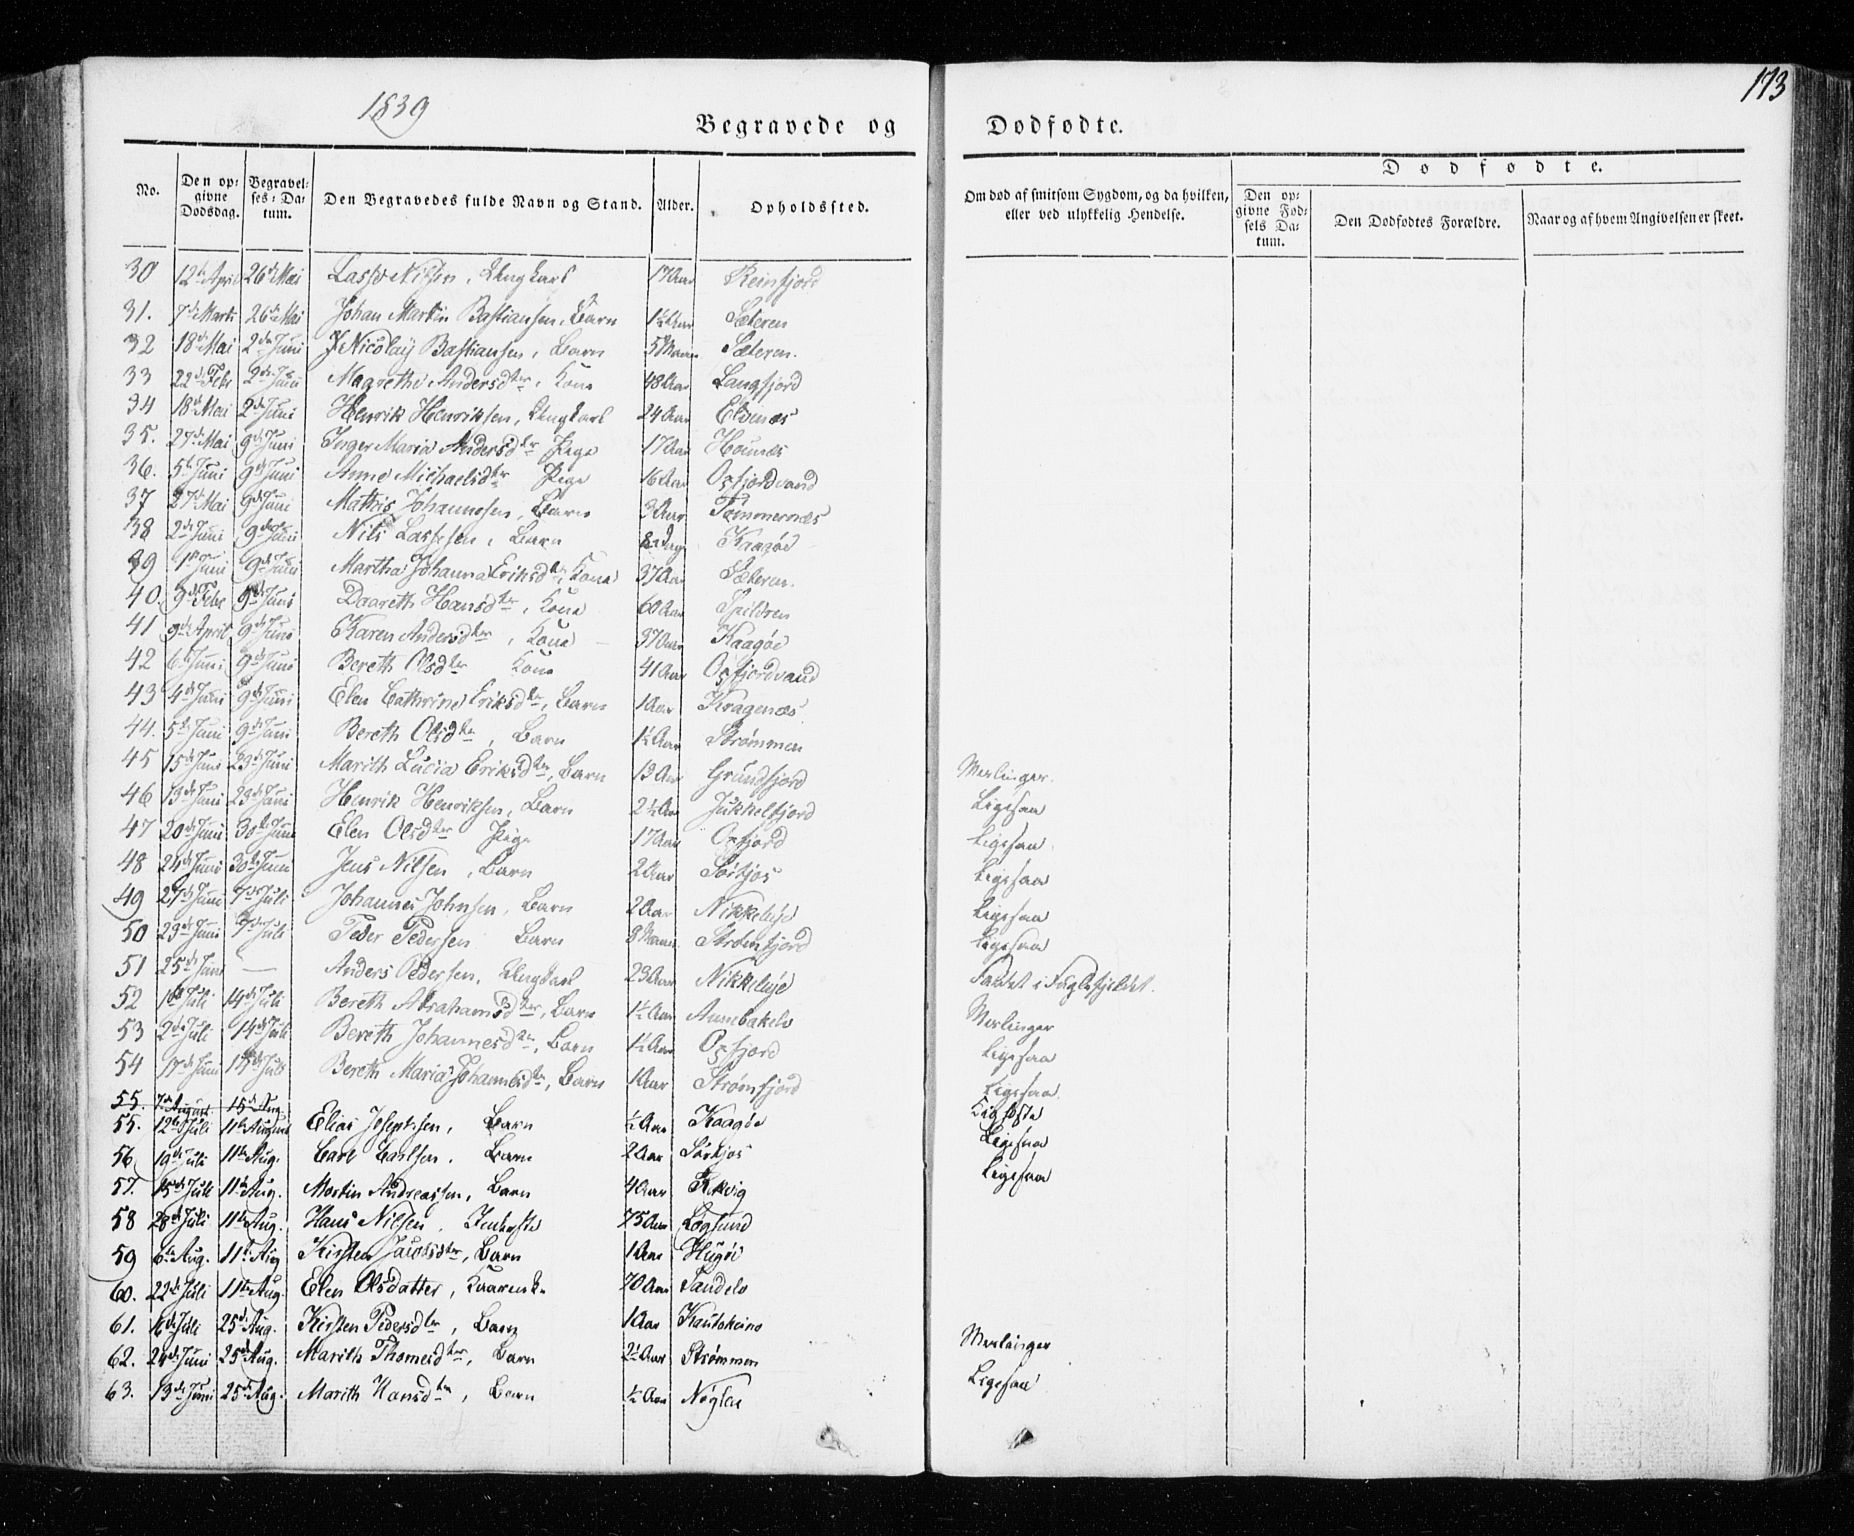 173
1839
Begravede og Dødfødte.
No. Den opgivne Dødsdag. Begravelses-Datum. Den Begravedes fulde Navn og Stand. Alder. Opholdssted. Om død af smitsom Sygdom, og da hvilken, eller ved ulykkelig Hendelse. Den opgivne Fødsels Datum. Den Dødfødtes Forældre. Naar og af hvem Angivelsen er skeet.
Dødfødte.
30 12te April 26de Mai Lasse Nilsen, Ungkarl 17 Aar Reinfjord
31. 7de Marts 26de Mai Johan Martin Bastiansen, Barn 1½ Aar Sæteren
32 18de Mai 2den Juni J Nicolay Bastiansen, Barn Sæteren.
33 22de Febr 2den Juni Magrethe Andersdtr, Kone 48 Aar Langfjord
34 18de Mai 2den Juni Henrik Henriksen, Ungkarl 24 Aar Elvenæs
35. 27de Mai 9de Juni Inger Maria Andersdtr Pige 17 Aar
36. 5te Juni 9de Juni Anne Michaelsdtr Pige 16 Aar Oxfjordvand
37 27de Mai 9de Juni Mathis Johannesen, Barn 3 Aar Tømmernæs
38 2den Juni 9de Juni Nils Lassesen, Barn 8 Dage Kaagøe
39 1ste Juni 9de Juni Martha Johanna Eriksdtr, Kone 37 Aar Sæteren.
40. 3de Febr 9de Juni Daareth Hansdtr, Kone 60 Aar Spildren
41 9de April 9de Juni Karen Andersdtr, Kone 37 Aar Kaagøe
42 6te Juni 9de Juni Bereth Olsdtr Kone 41 Aar Oxfjordvand
43 4de Juni 9de Juni Elen Cathrine Eriksdtr, Barn 1 Aar Kragenæs
44. 5te Juni 9de Juni Bereth Olsdtr, Barn 1½ Aar Strømmen
45 15de Juni 23de Juni Marith Lucia Eriksdtr, Barn 13 Aar Grundfjord Meslinger.
46 13de Juni 23de Juni Henrik Henriksen, Barn 2½ Aar Jukkelfjord Ligesaa
47 20de Juni 30te Juni Elen Olsdtr Pige 17 Aar Oxfjord Ligesaa
48 24de Juni 30te Juni Jens Nilsen, Barn 2 Aar Sørkjos Ligesaa
49 27de Juni 7de Juli Johannes Johnsen, Barn 2 Aar Nikkeluje Ligesaa
50 23de Juni 7de Juli Peder Pedersen Barn 8 Maan. Ligesaa
51 25de Juni — Anders Pedersen, Ungkarl 23 Aar Nikkeluje Faldet i Fuglefjeldet.
52 1ste Juli 14de Juli Bereth Abrahamsdtr, Barn 1½ Aar Meslinger
53 2den Juli 14de Juli Bereth Johannesdtr, Barn 1½ Aar Oxfjord Ligesaa
54 17de Juni 14de Juli Bereth Maria Johannesdtr, Barn 1 Aar Strømfjord Ligesaa.
55. 7de August 18de Aug.
55. 12te Juli 11te August Elias Josephsen, Barn ½ Aar Kaagøe Kighoste
Ligesaa
56 19de Juli 11te Aug. Carl Carlsen. Barn 2 Aar Sørkjos Ligesaa
57. 15de Juli 11te Aug. Martin Andreassen, Barn 4 Aar
58 28de Juli 11te Aug. Hans Nilsen. 75 Aar Løgsund
59 6te Aug. 11te Aug Kirsten Jacobsdtr, Barn 1 Aar
60. 22de Juli 11te Aug. Elen Olsdatter, 70 Aar Sandelv
61. 16de Juli 25de Aug. Kirsten Pedersdtr, Barn 1 Aar Kautokeino
62. 24de Juni 25de Aug. Marith Thomesdtr, Barn 2½ Aar Strømmen Meslinger
63. 13de Juni 25de Aug. Marith Hansdtr, Barn ½ Aar Nøglen Ligesaa